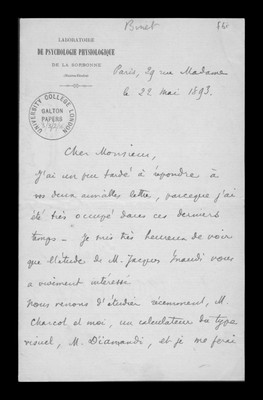 Binet
LABORATOIRE
DE PSYCHOLOGIE PHYSIOLOGIQUE
DE LA SORBONNE
(Hautes-Études)
Paris, 29 rue Madame
le 22 mai 1893.
UNIVERSITY COLLEGE LONDON
GALTON
PAPERS
Cher Monsieur,
J'ai un peu tardé à répondre à
vos deux aimables lettre, parceque j'ai
été très occupé dans ces derniers
temps – Je suis très heureux de voir
que l'étude de M. Jacques Inaudi vous
a vivement intéressé
nous venons d'étudier récemment, M.
Charcot et moi, un calculateur du type
visuel, M. Diamandi, et je me ferai